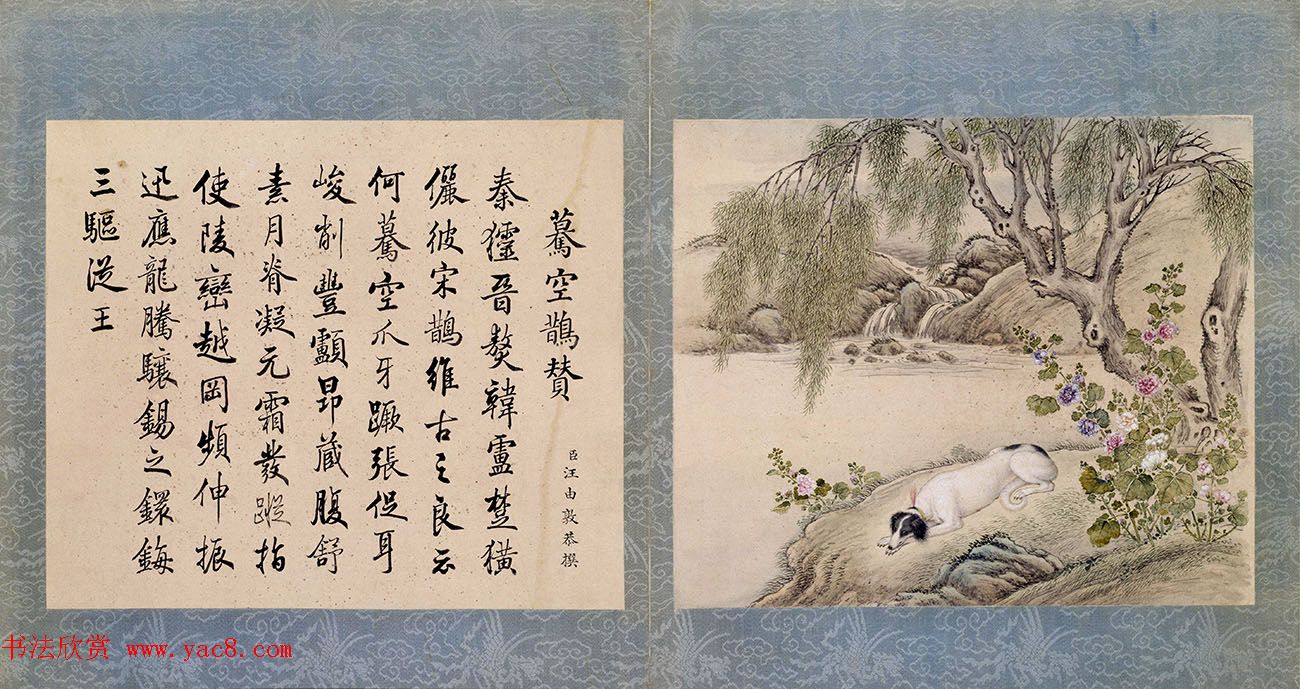 驀空鵲賛
臣汪由敦恭撰
秦晉獒韓盧楚獚
儷彼宋鵲維古之良云
何驀空爪牙蹶張促耳
峻削豐顱昂藏腹舒
素月脊凝元霜發蹤指
使陵巒越岡頻伸振
迅應龍騰驤錫之鐶鋂
三驅從王
书法欣赏 www.yac8.com